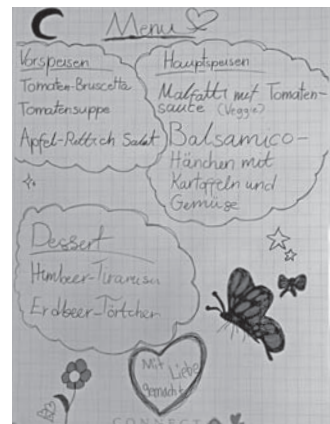 Menu
Vorspeisen
Tomaten-Bruscetta
Tomatensuppe
Apfel-Rettich Salat
Hauptspeisen
Malfatti mit Tomaten-
sauce (Veggie)
Balsamico-
Hänchen mit
Kartoffeln und
Gemüse
Dessert
Himbeer-Tiramisu
Erdbeer-Törtchen
Mit
Liebe
gemacht
CONNECT